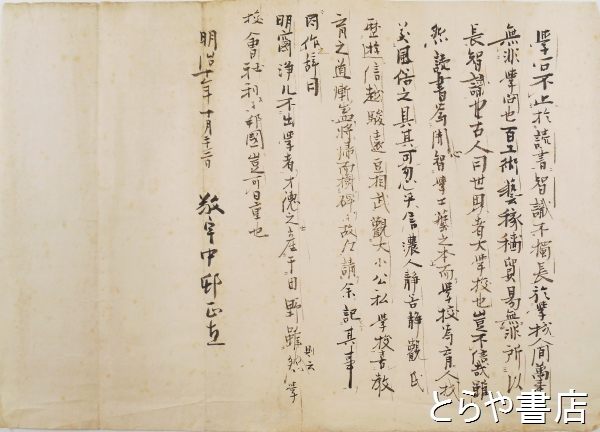 學問不止於讀書智識不獨長於學校人間萬事
無非學問也百工術藝稼穡貿易無非所以
長智識也古人曰世界者大學校也豈不信哉雖
然讀書為開智學工藝之本而學校為育人才
美風俗之具其可忽乎信濃人靜 氏
歷遊信越駿遠豆相武觀大小公私學校喜教
育之道漸盛將歸而樹碑 請余記其事
因作辭曰
明窗淨几不出學者才 之 座于田野雖然學
則云
校會社利小 國豈可日童也
明治十一年十月十二日
敬宇中邨正直
とらや書店